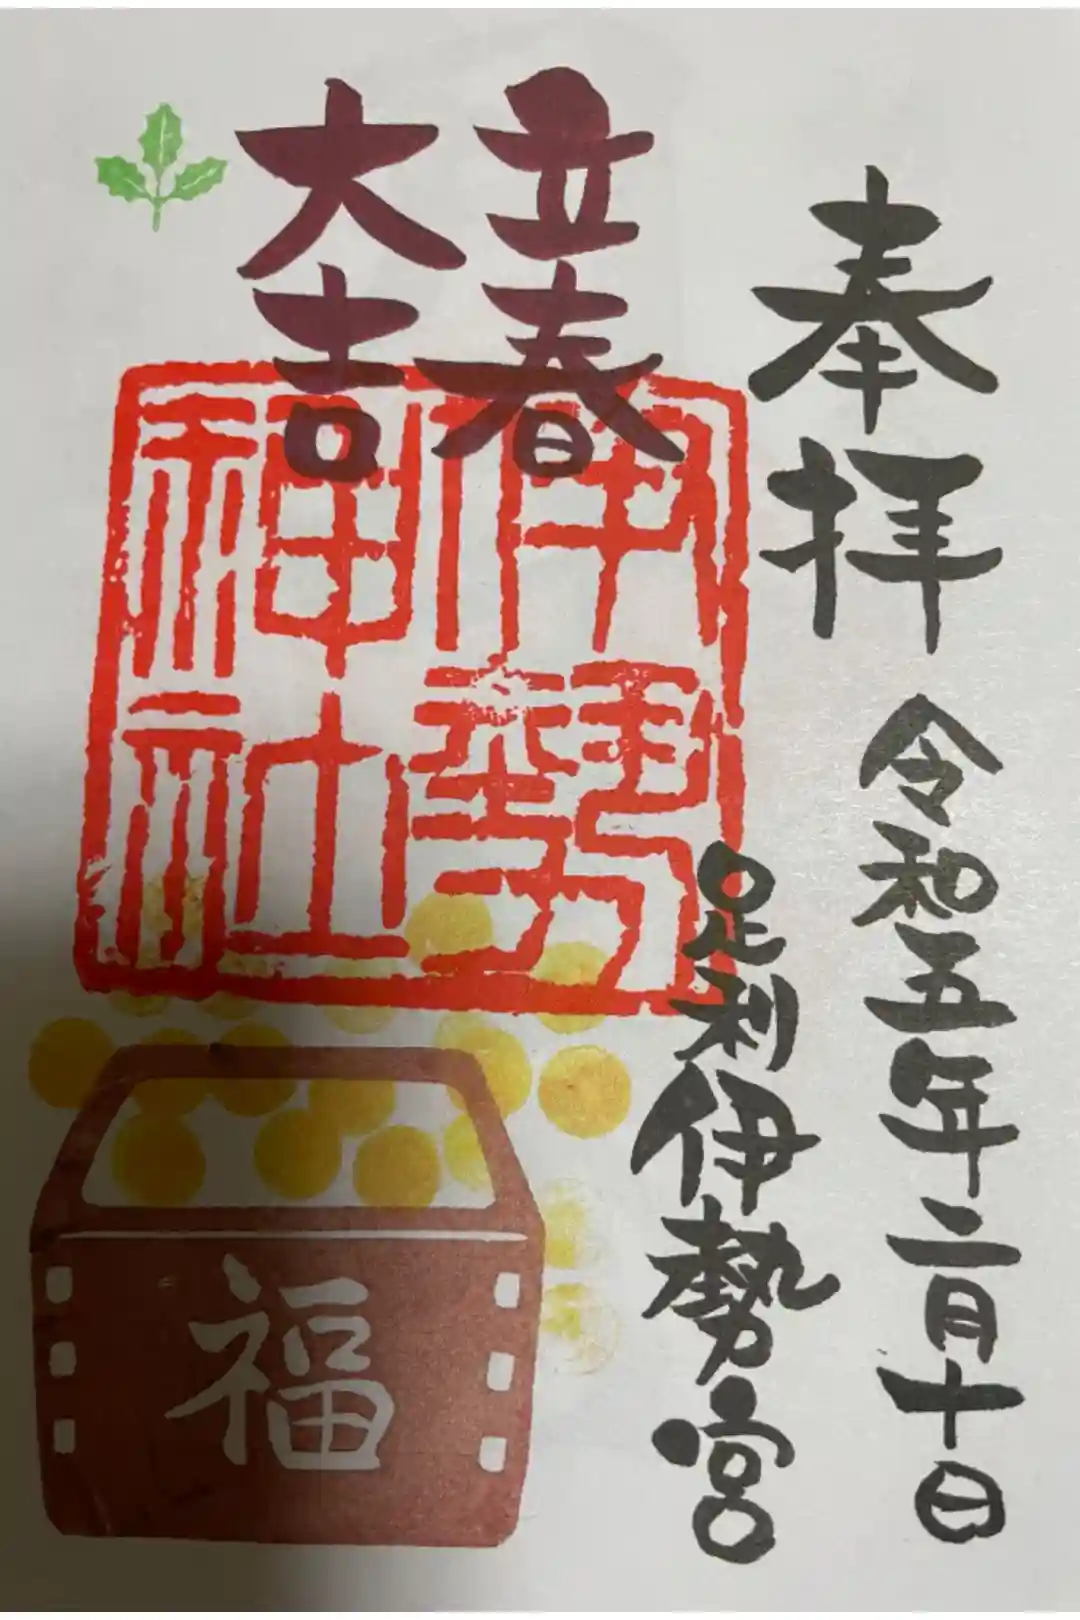 奉拝
令和五年二月十日
足利伊勢宮
立春
大吉
伊勢
神社
福